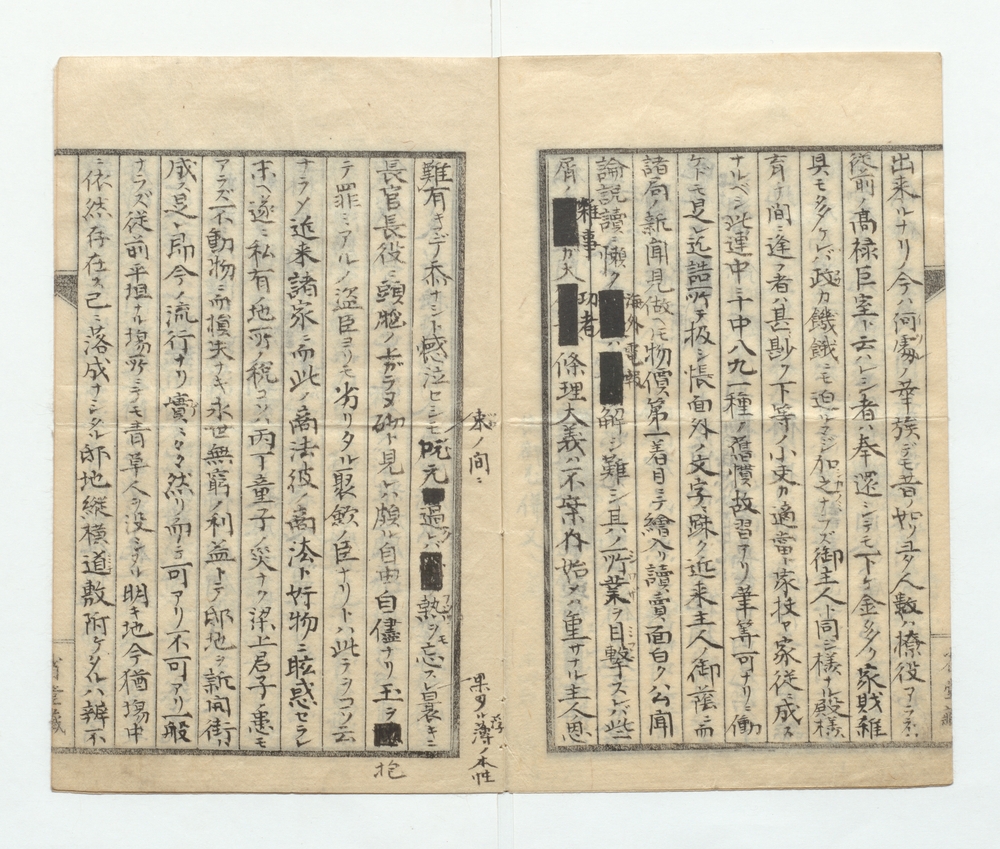 出来ルナリ今ハ何處ノ華族デモ昔ノ如ク多人数ハ撩役アラネバ
陸前ノ高禄巨室ト云ハレシ者ハ奉還シテモ下ケ金多ク家財雑
具モ多ケレバ政カ饑餓ニモ迫ルマジ加之ナラズ御主人ト同ジ様ナル殿様
育ナレ間ニ逢フ者ハ甚尠ク下等ノ小吏カ適當ト家扶ヤ家従ニ成ス
ナルベシ此連中ニ十中八九一種ノ舊慣故習アリ筆算可ナリニ働
ケドモ是レ迄詰所テ扱シ帳面外ノ文字ニ疎ク近来主人ノ御蔭ニ而
諸局ノ新聞見做ヘモ物價ヲ第一着目ニテ繪入リ讀賣面白ク公聞
論説讀ニ懶ク
海外電報
ハ解シ難シ其ノ所業ヲ目撃スレバ些
屑ノ
雜事
ガ大
功者
條理大義ハ不案内始メハ重サナル主人恩
束ノ間ニ
果タル薄ノ本性
難有キデ忝ナシト感泣セシモ
咙元
過レバ
熱ヲモ忘ス良裏キニ
長官長役ニ頭腔ノ上ガラヌ砌ト見レバ頗ル自由自儘ナリ玉ヲ
抱
テ罪ミアルノ盗臣ヨリモ劣リタル聚歛ノ臣ナリトハ此テヲコソ云
ナラメ近来諸家ニ而此ノ商法彼ノ商法ト奸物ニ眩惑セラレ
末ヘ遂ニ私有地所ノ税コソハ丙丁童子ノ災ナク梁上君子ノ患モ
アラズ不動物ニ而損失ナキ永世無窮ノ利益トテ邸地ヲ新開街ニ
成ス是レ即今ノ流行ナリ嘖ミタマ然リ而シテ可アリ不可アリ一般
ナラズ従前平坦ナル場所ニテモ青草人ヲ没シタル明キ地今猶場中
ニ依然存在ス已ニ落成ナシタル邸地縦横道敷附ケタルハ辨不